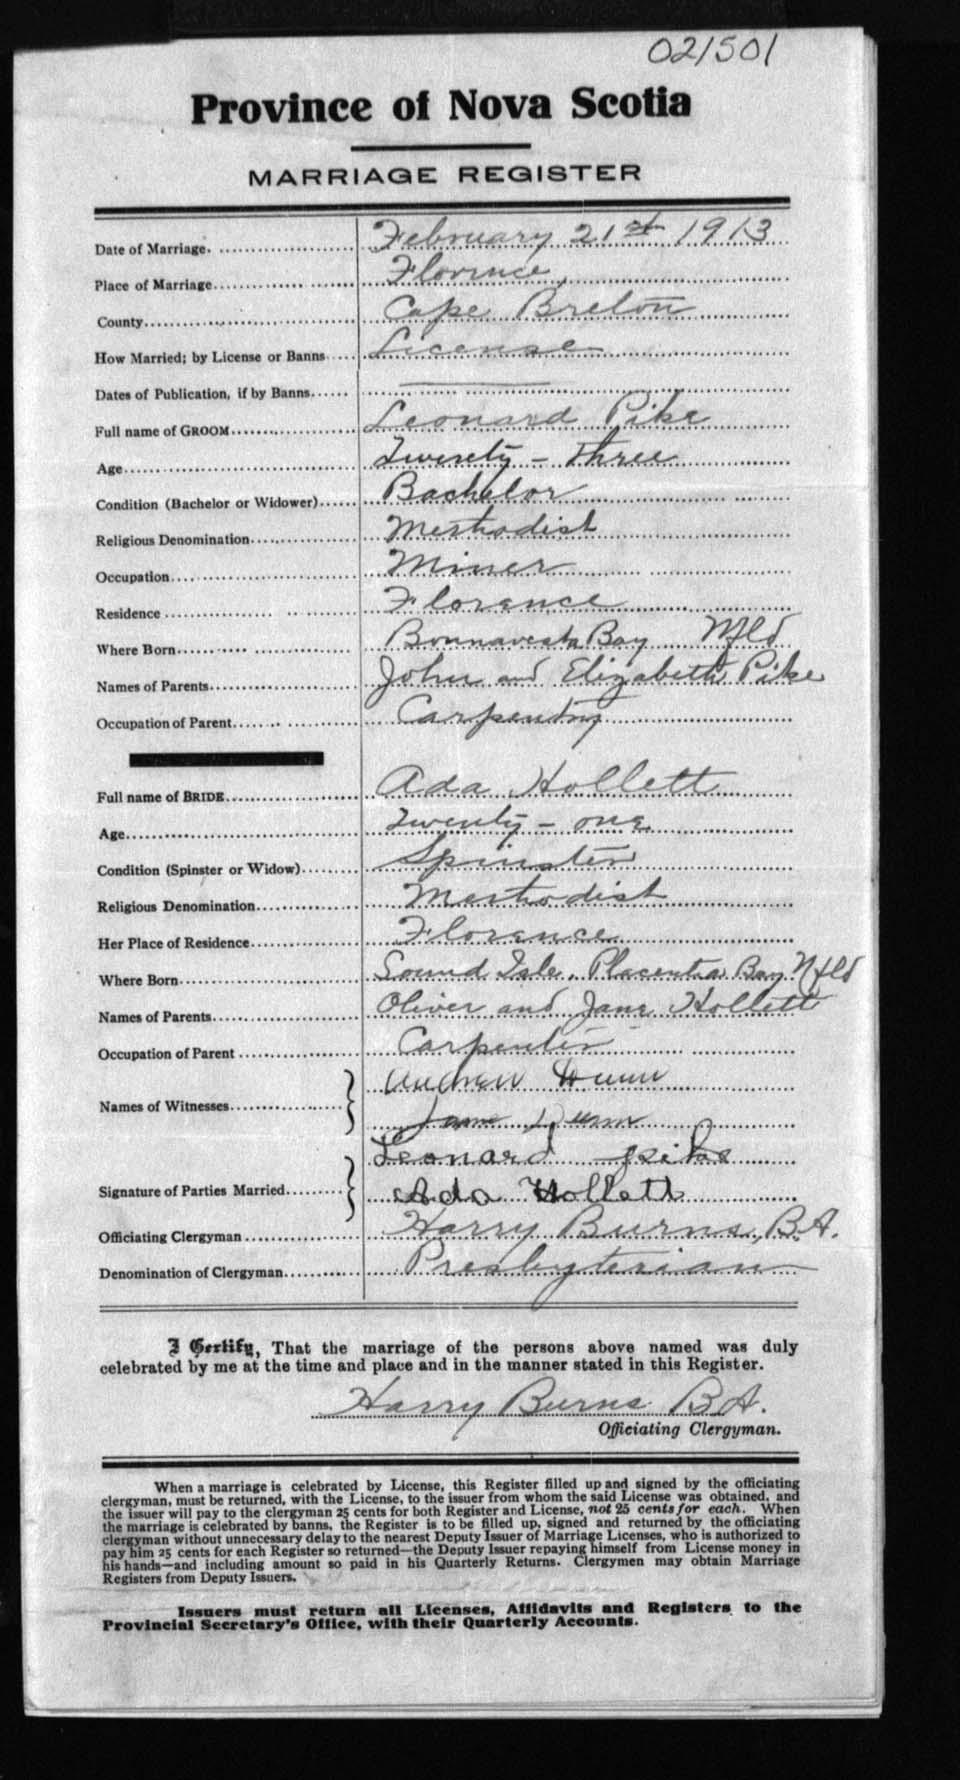 021501
Province of Nova Scotia
MARRIAGE REGISTER
Date of Marriage. February 21st 1913
Place of Marriage Florence,
County Cape Breton
How Married; by License or Banns License
Dates of Publication, if by Banns
Full name of GROOM Leonard Pike
Age Twenty - three
Condition (Bachelor or Widower) Bachelor
Religious Denomination Methodist
Occupation Miner
Residence Florence
Where Born Bonnavesta Bay Nfld
Names of Parents John and Elizabeth Pike
Occupation of Parent
Full name of BRIDE Ada Hollett
Age Twenty - one
Condition (Spinster or Widow) Spinster
Religious Denomination Methodist
Her Place of Residence Florence
Where Born Sound Isle, Placentia Bay Nfld
Names of Parents Oliver and Jane Hollett
Occupation of Parent Carpenter
Names of Witnesses } Andrew Dunn
Dunn
Signature of Parties Married } Leonard pike
Ada Hollett
Officiating Clergyman Harry Burns, B.A.
Denomination of Clergyman Presbyterian
I Certify, That the marriage of the persons above named was duly
celebrated by me at the time and place and in the manner stated in this Register.
Harry Burns B.A.
Officiating Clergyman.
When a marriage is celebrated by License, this Register filled up and signed by the officiating
clergyman, must be returned, with the License, to the issuer from whom the said License was obtained, and
the issuer will pay to the clergyman 25 cents for both Register and License, not 25 cents for each. When
the marriage is celebrated by banns, the Register is to be filled up, signed and returned by the officiating
clergyman without unnecessary delay to the nearest Deputy Issuer of Marriage Licenses, who is authorized to
pay him 25 cents for each Register so returned—the Deputy Issuer repaying himself from License money in
his hands—and including amount so paid in his Quarterly Returns. Clergymen may obtain Marriage
Registers from Deputy Issuers.
Issuers must return all Licenses, Affidavits and Registers to the
Provincial Secretary's Office, with their Quarterly Accounts.